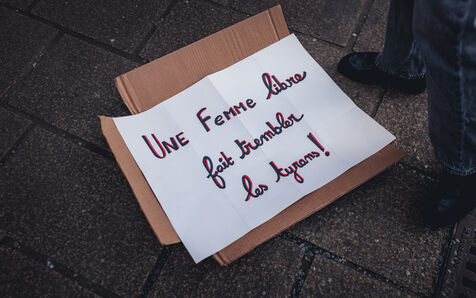 UNE FEMME libre
fait trembler
les tyrans!